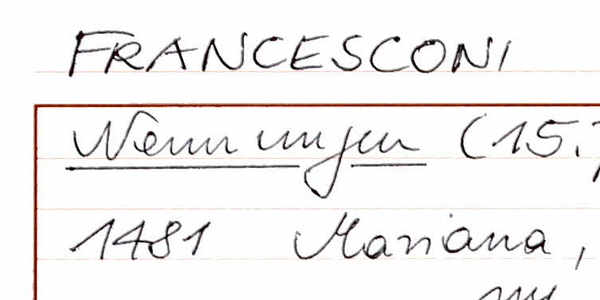 FRANCESCONI
Nennungen (15.
1481 Mariana,